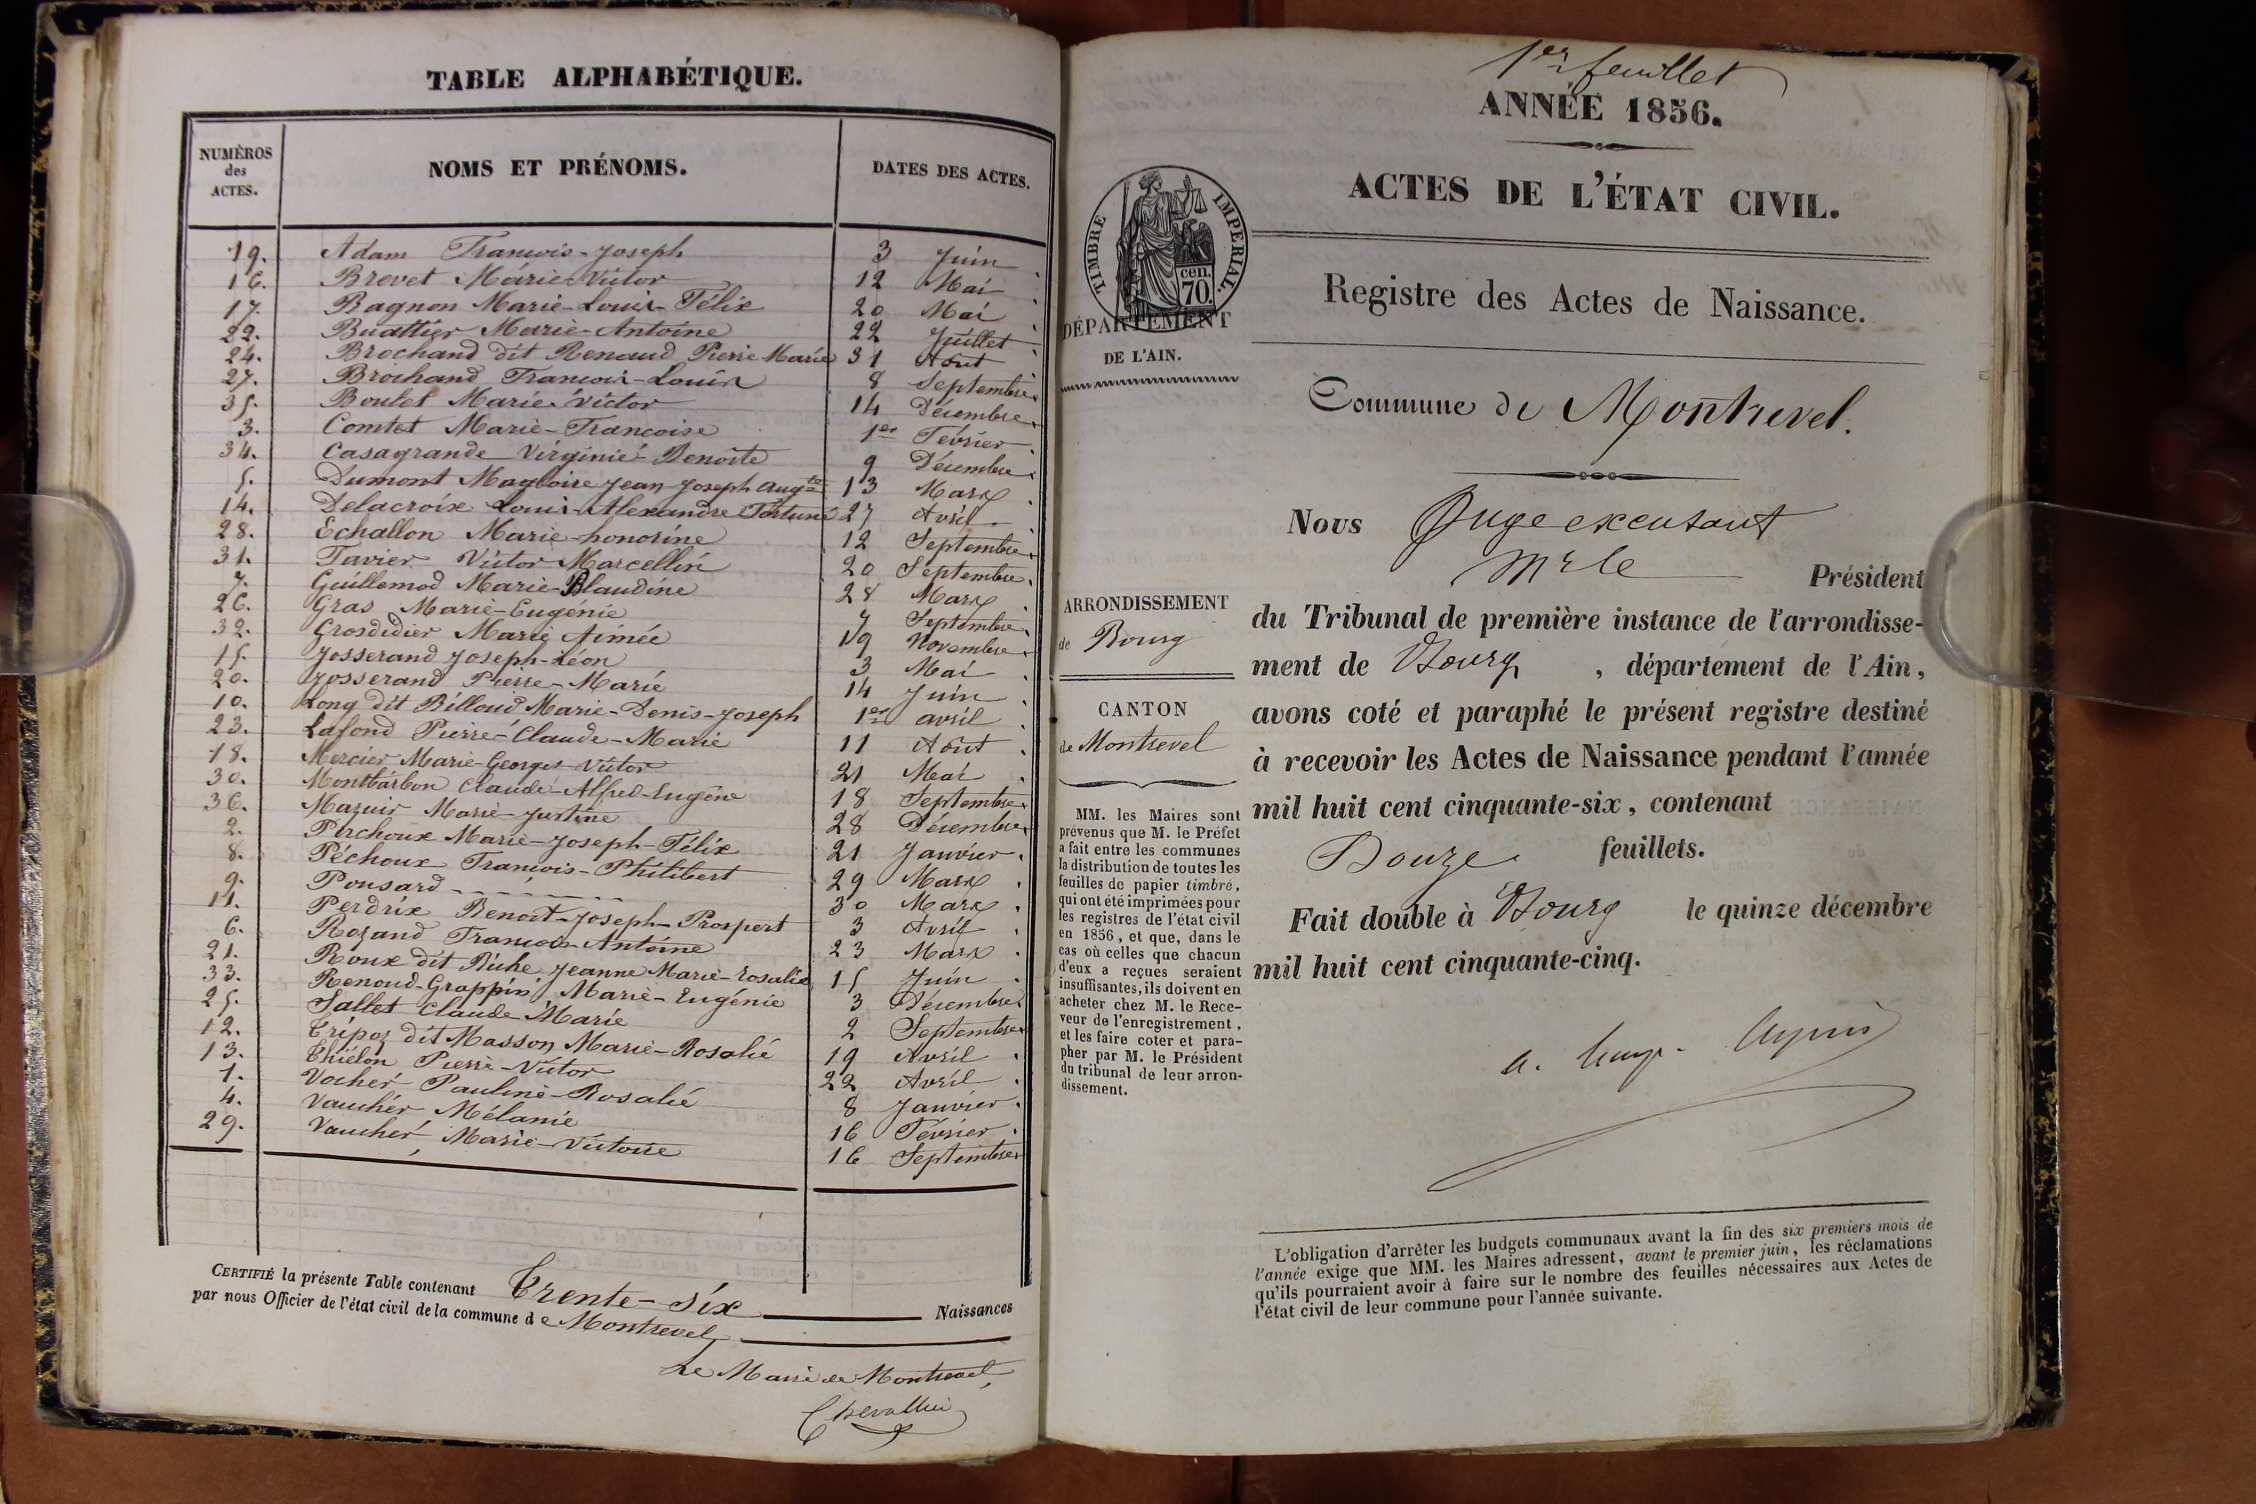 TABLE ALPHABÉTIQUE.
NUMÉROS des ACTES. NOMS ET PRÉNOMS. DATES DES ACTES.
19. Adam François-Joseph 3 Juin
16. Brevet Marie-Victor 12 Mai
17. Bagnon Marie-Louis-Félix 20 Mai
22. Buattier Marie-Antoine 22 Juillet
24. Brochand dit Renaud Pierre Marie 31 Août
27. Brochand François-Louis 8 Septembre
35. Boulet Marie-Victor 14 Décembre
3. Comtet Marie-Françoise 1er Février
34. Casagrande Virginie-Benoite 9 Décembre
5. Dumont Magloire Jean-Joseph Augte 13 Mars
14. Delacroix Louis-Alexandre Fortuné 27 Avril
28. Echallon Marie-honorine 12 Septembre
31. Favier Victor Marcellin 20 Septembre
7. Guillemod Marie-Blaudine 28 Mars
26. Gras Marie-Eugénie 7 Septembre
32. Grosdidier Marie Aimée 19 Novembre
15. Josserand Joseph-Léon 3 Mai
20. Josserand Pierre-Marie 14 Juin
10. Long dit Billoud Marie-Denis-Joseph 1er avril
23. Lafond Pierre-Claude-Marie 11 Août
18. Mercier Marie-Georges-Victor 21 Mai
30. Montbarbon Claude-Alfred-Eugène 18 Septembre
36. Mazuir Marie-Justine 28 Décembre
2. Perchoux Marie-Joseph-Félix 21 Janvier
8. Péchoux François-Philibert 29 Mars
9. Ponsard 30 Mars
11. Perdrix Benoit-Joseph-Prospert 3 Avril
6. Rozand François-Antoine 23 Mars
21. Roux dit Biche Jeanne Marie-Rosalie 15 Juin
33. Renoud-Grappin Marie-Eugénie 3 Décembre
25. Sallet Claude Marie 2 Septembre
12. Tripoz dit Masson Marie-Rosalie 19 Avril
13. Thiélon Pierre-Victor 22 Avril
1. Vocher Pauline-Rosalie 8 Janvier
4. Vaucher Mélanie 16 Février
29. Vaucher, Marie-Victoire 16 Septembre
CERTIFIÉ la présente Table contenant Trente-six Naissances
par nous Officier de l'état civil de la commune de Montrevel
Le Maire de Montrevel,
Chevallier
1er feuillet
ANNÉE 1856.
ACTES DE L'ÉTAT CIVIL.
TIMBRE IMPERIAL.
cen.
70.
DÉPARTEMENT
DE L'AIN.
Registre des Actes de Naissance.
Commune de Montrevel.
ARRONDISSEMENT
de Bourg
CANTON
de Montrevel
MM. les Maires sont
prévenus que M. le Préfet
a fait entre les communes
la distribution de toutes les
feuilles de papier timbré,
qui ont été imprimées pour
les registres de l'état civil
en 1856, et que, dans le
cas où celles que chacun
d'eux a reçues seraient
insuffisantes, ils doivent en
acheter chez M. le Rece-
veur de l'enregistrement,
et les faire coter et para-
pher par M. le Président
du tribunal de leur arron-
dissement.
Nous Juge excusant
Mr le Président
du Tribunal de première instance de l'arrondisse-
ment de Bourg, département de l'Ain,
avons coté et paraphé le présent registre destiné
à recevoir les Actes de Naissance pendant l'année
mil huit cent cinquante-six, contenant
Douze feuillets.
Fait double à Bourg le quinze décembre
mil huit cent cinquante-cinq.
L'obligation d'arrêter les budgets communaux avant la fin des six premiers mois de
l'année exige que MM. les Maires adressent, avant le premier juin, les réclamations
qu'ils pourraient avoir à faire sur le nombre des feuilles nécessaires aux Actes de
l'état civil de leur commune pour l'année suivante.